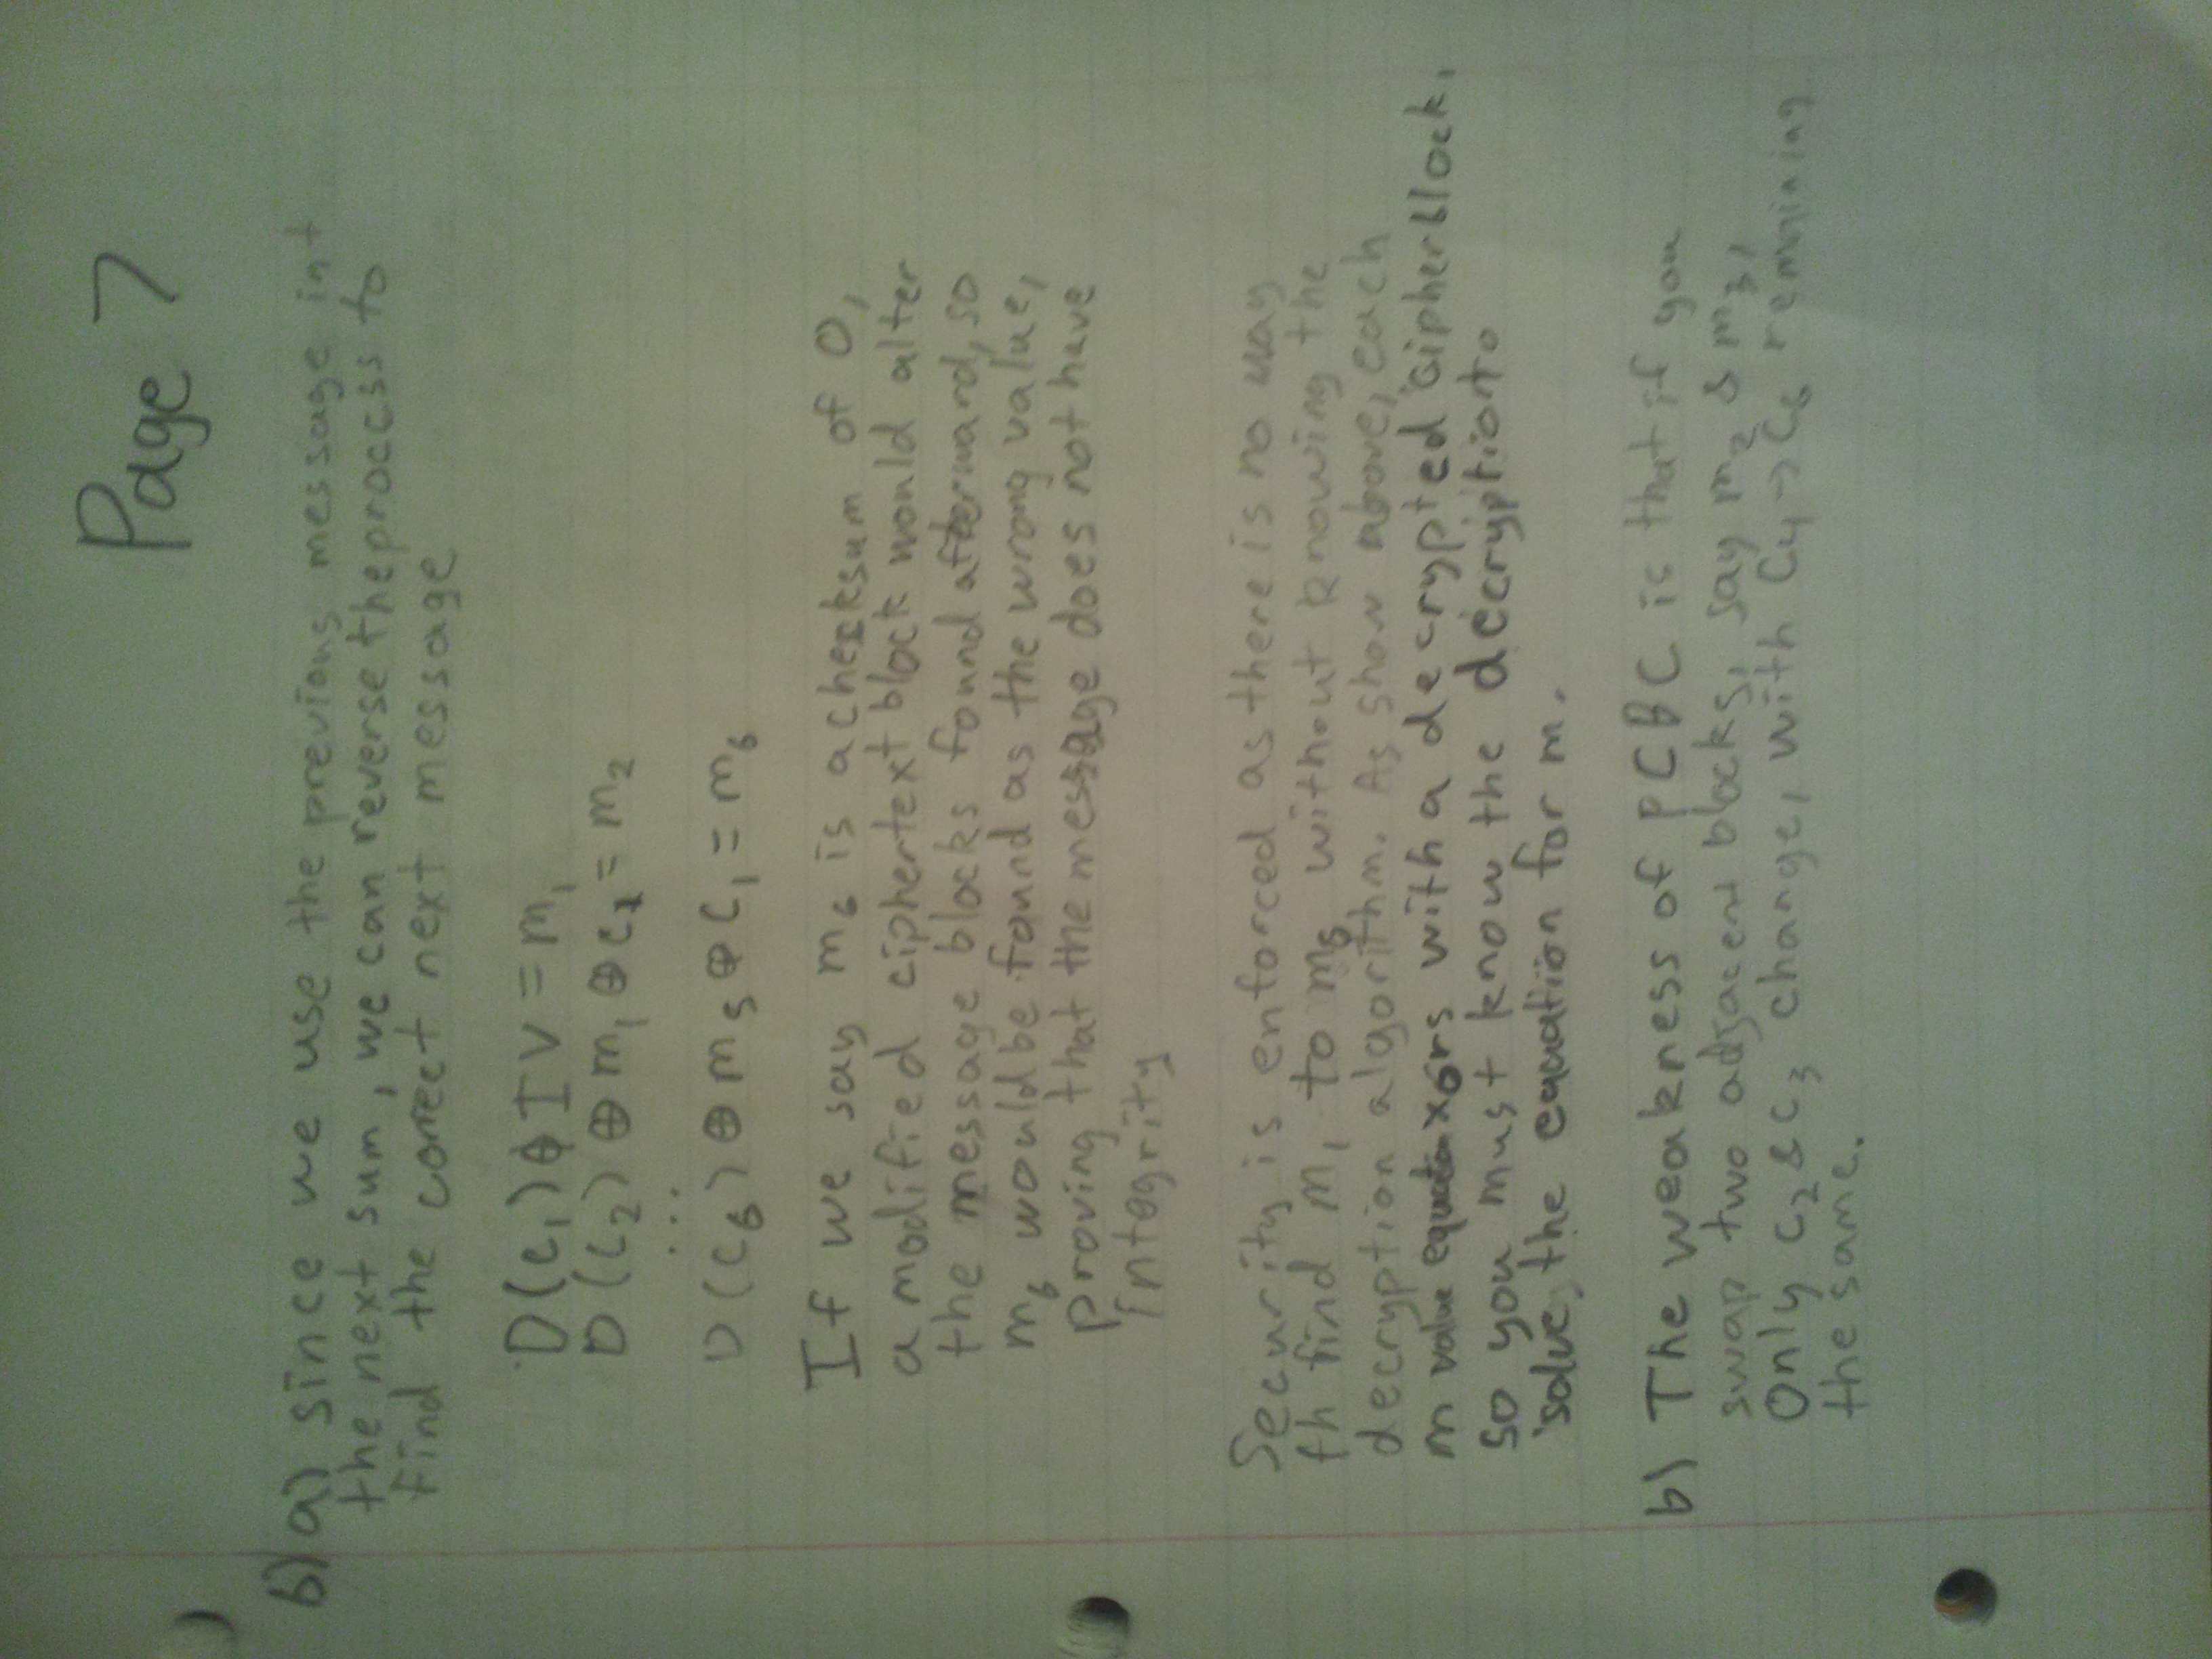 Page 7
6) a) since we use the previous message int
the next sum, we can reverse the process to
find the correct next message
D(c₁) ⊕ IV = m₁
D(c₂) ⊕ m₁ ⊕ c₁ = m₂
⋮
D(c₆) ⊕ m₅ ⊕ C₁ = m₆
If we say m₆ is a checksum of 0,
a modified ciphertext block would alter
the message blocks found afterward, so
m₆ would be found as the wrong value,
proving that the message does not have
integrity
Security is enforced as there is no way
th find m₁ to m₆ without knowing the
decryption algorithm. As show above, each
m value equation xors with a decrypted cipherblock,
so you must know the decryption to
solve the equation for m.
b) The weakness of PCBC is that if you
swap two adjacent blocks, say m₂ & m₃,
Only c₂ & c₃ change, with C₄ → C₆ remaining
the same.